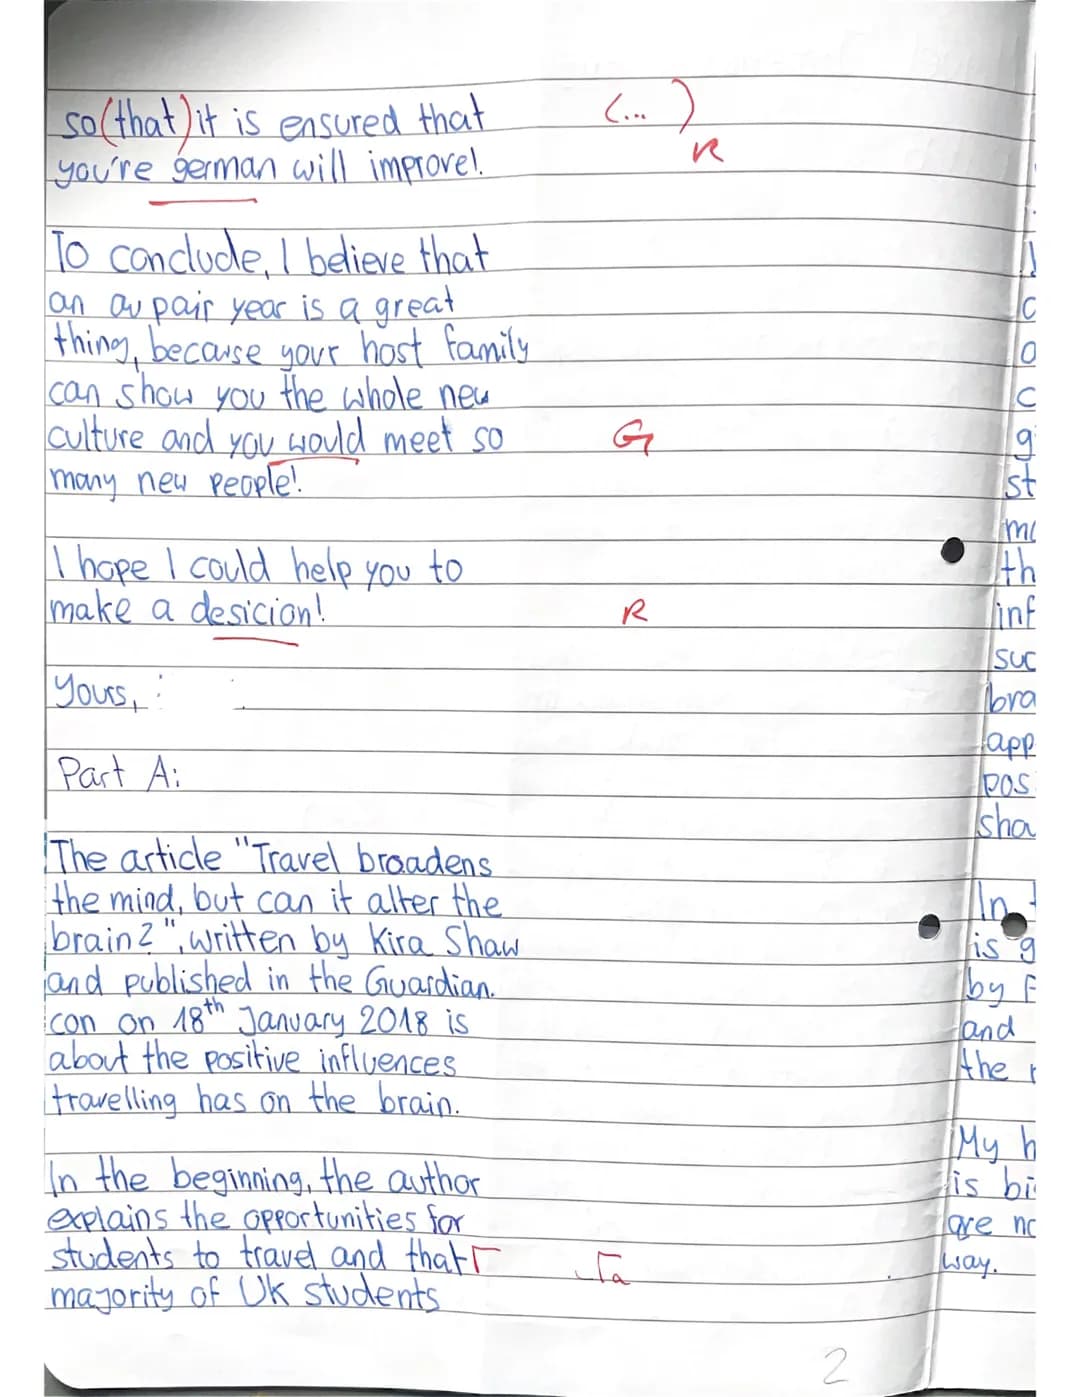 so(that) it is ensured that (...)
you're german will improve! R
To conclude, I believe that
an au pair year is a great
thing, because your host family
can show you the whole new
culture and you would meet so G
many new people!
I hope I could help you to
make a desicion! R
Yours,
Part A:
The article "Travel broadens
the mind, but can it alter the
brain?", written by Kira Shaw
and published in the Guardian.
con on 18th January 2018 is
about the positive influences
travelling has on the brain.
In the beginning, the author
explains the opportunities for
students to travel and that Γ Γa
majority of UK students
2
g
st
th
inf
suc
bra
app
pos
sha
In
is g
by F
and
the
My h
is bi
are no
way.